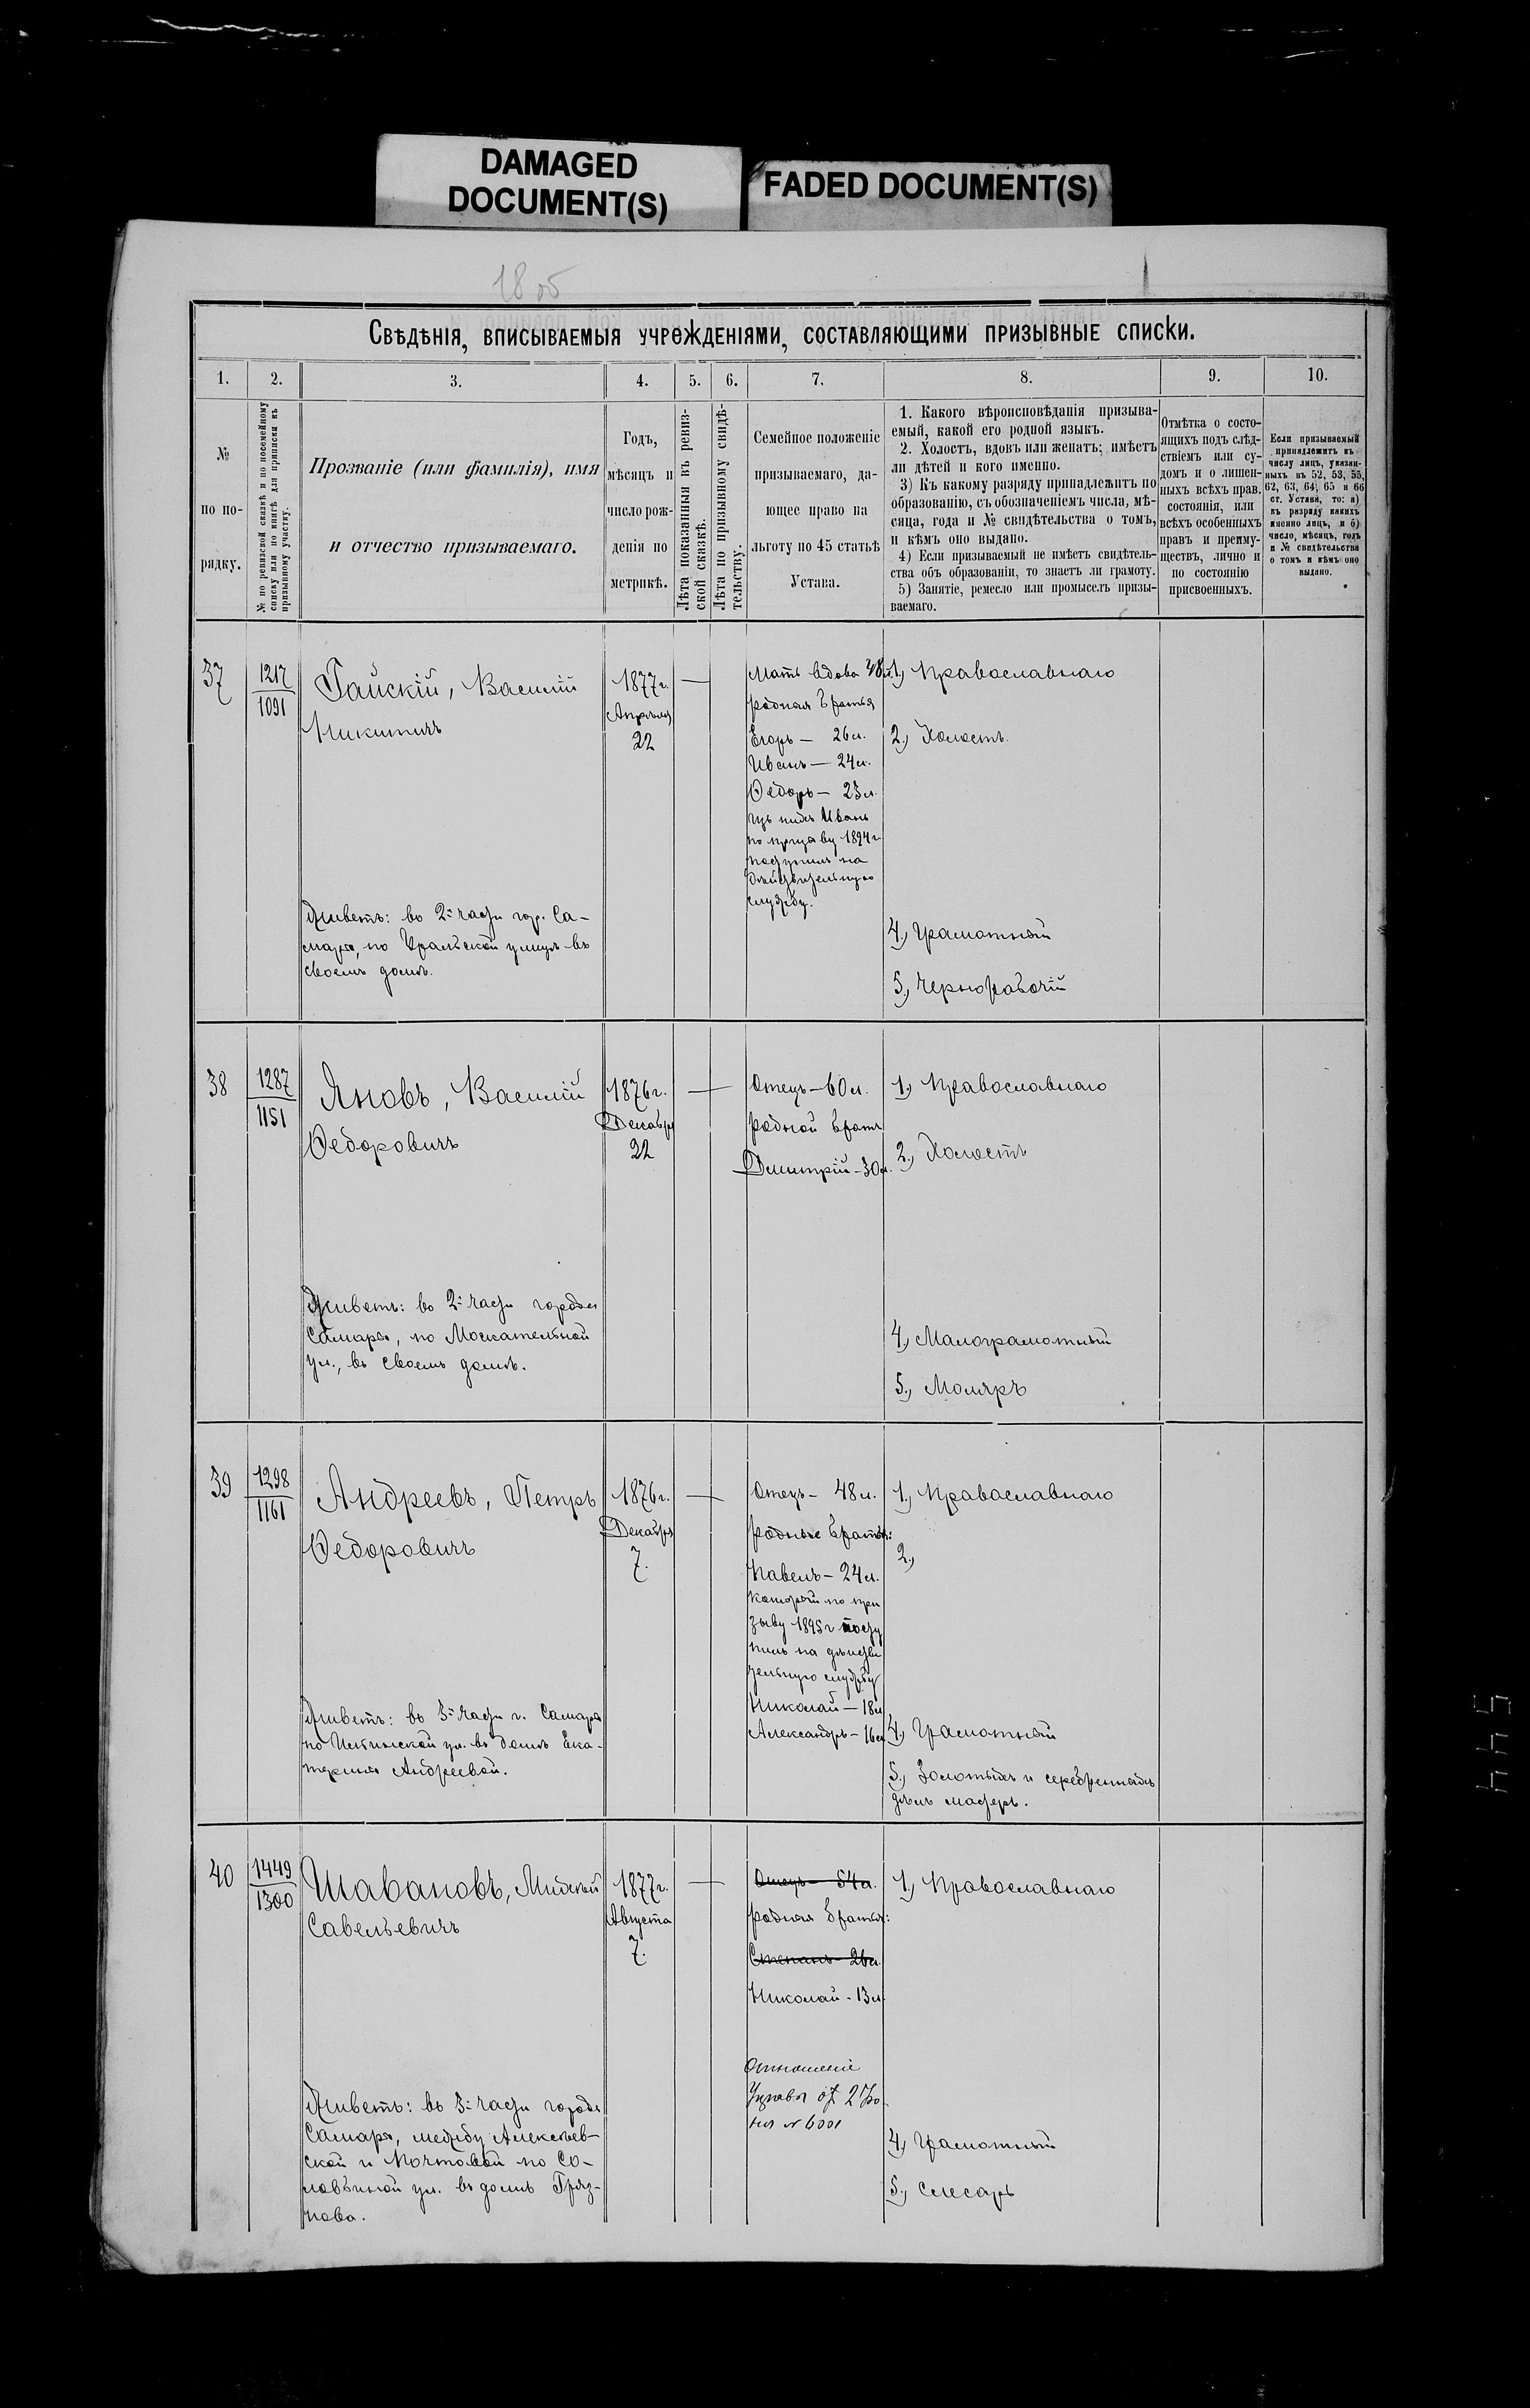 DAMAGED
DOCUMENT(S)
FADED DOCUMENT(S)
18 об
Свѣдѣнія, вписываемыя учрежденіями, составляющими призывные списки.
1. 2. 3. 4. 5. 6. 7. 8. 9. 10.
№
по по-
рядку.
№ по ревизской сказкѣ и по посемейному
списку или по книгѣ для приписки къ
призывному участку.
Прозваніе (или фамилія), имя
и отчество призываемаго.
Годъ,
мѣсяцъ и
число рож-
денія по
метрикѣ.
Лѣта показанныя въ ревиз-
ской сказкѣ.
Лѣта по призывному свидѣ-
тельству.
Семейное положеніе
призываемаго, да-
ющее право на
льготу по 45 статьѣ
Устава.
1. Какого вѣроисповѣданія призыва-
емый, какой его родной языкъ.
2. Холостъ, вдовъ или женатъ; имѣетъ
ли дѣтей и кого именно.
3) Къ какому разряду принадлежитъ по
образованію, съ обозначеніемъ числа, мѣ-
сяца, года и № свидѣтельства о томъ,
и кѣмъ оно выдано.
4) Если призываемый не имѣетъ свидѣтель-
ства объ образованіи, то знаетъ ли грамоту.
5) Занятіе, ремесло или промыселъ призы-
ваемаго.
Отмѣтка о состо-
ящихъ подъ слѣд-
ствіемъ или су-
домъ и о лишен-
ныхъ всѣхъ прав.
состоянія, или
всѣхъ особенныхъ
правъ и преиму-
ществъ, лично и
по состоянію
присвоенныхъ.
Если призываемый
принадлежитъ къ
числу лицъ, указан-
ныхъ въ 52, 53, 55,
62, 63, 64, 65 и 66
ст. Устава, то: а)
къ разряду какихъ
именно лицъ, и б)
число, мѣсяцъ, годъ
и № свидѣтельства
о томъ и кѣмъ оно
выдано.
37
1217
1091
Гайскій, Василій
Никитичъ
Живетъ: во 2й части гор. Са-
мары, по Уральской улицѣ въ
своемъ домѣ.
1877 г.
Апрѣля
22
Мать вдова 48 л.
родныя братья
Егоръ — 26 л.
Иванъ — 24 л.
Ѳедоръ — 23 л.
изъ нихъ Иванъ
по призыву 1894 г
поступилъ на
дѣйствительную
службу.
1, Православнаго
2, Холостъ.
4, Грамотный
5, Чернорабочій
38
1287
1151
Яновъ, Василій
Ѳедоровичъ
Живетъ: во 2й части города
Самары, по Москательной
ул., въ своемъ домѣ.
1876 г.
Декабря
22
Отецъ — 60 л.
Родной братъ
Дмитрій - 30 л.
1, Православнаго
2, Холостъ
4, Малограмотный
5, Маляръ
39
1298
1161
Андреевъ, Петръ
Ѳедоровичъ
Живетъ: во 3й части г. Самары
по Ильинской ул. въ домѣ Ека-
терины Андреевой.
1876 г.
Декабря
7.
Отецъ — 48 л.
Родные братья:
Павелъ — 24 л.
который по при
зыву 1895 г посту
пилъ на дѣйстви
тельную службу
Николай — 18 л
Александръ — 16 л
1, Православнаго
2,
4, Грамотный
5, Золотыхъ и серебренныхъ
дѣлъ мастеръ.
40
1449
1300
Шавановъ,
Савельевичъ
Живетъ: во 3й части города
Самары, между Алексѣев-
ской и Почтовой по Со-
ловьиной ул. въ домѣ Гряз-
нова.
1877 г.
Августа
7.
Отецъ — 54 л.
родныя братья:
Степанъ — 26 л.
Николай - 13 л
Отношеніе
Управы от 2
№ 6001
1, Православнаго
4, Грамотный
5, Слесарь
544